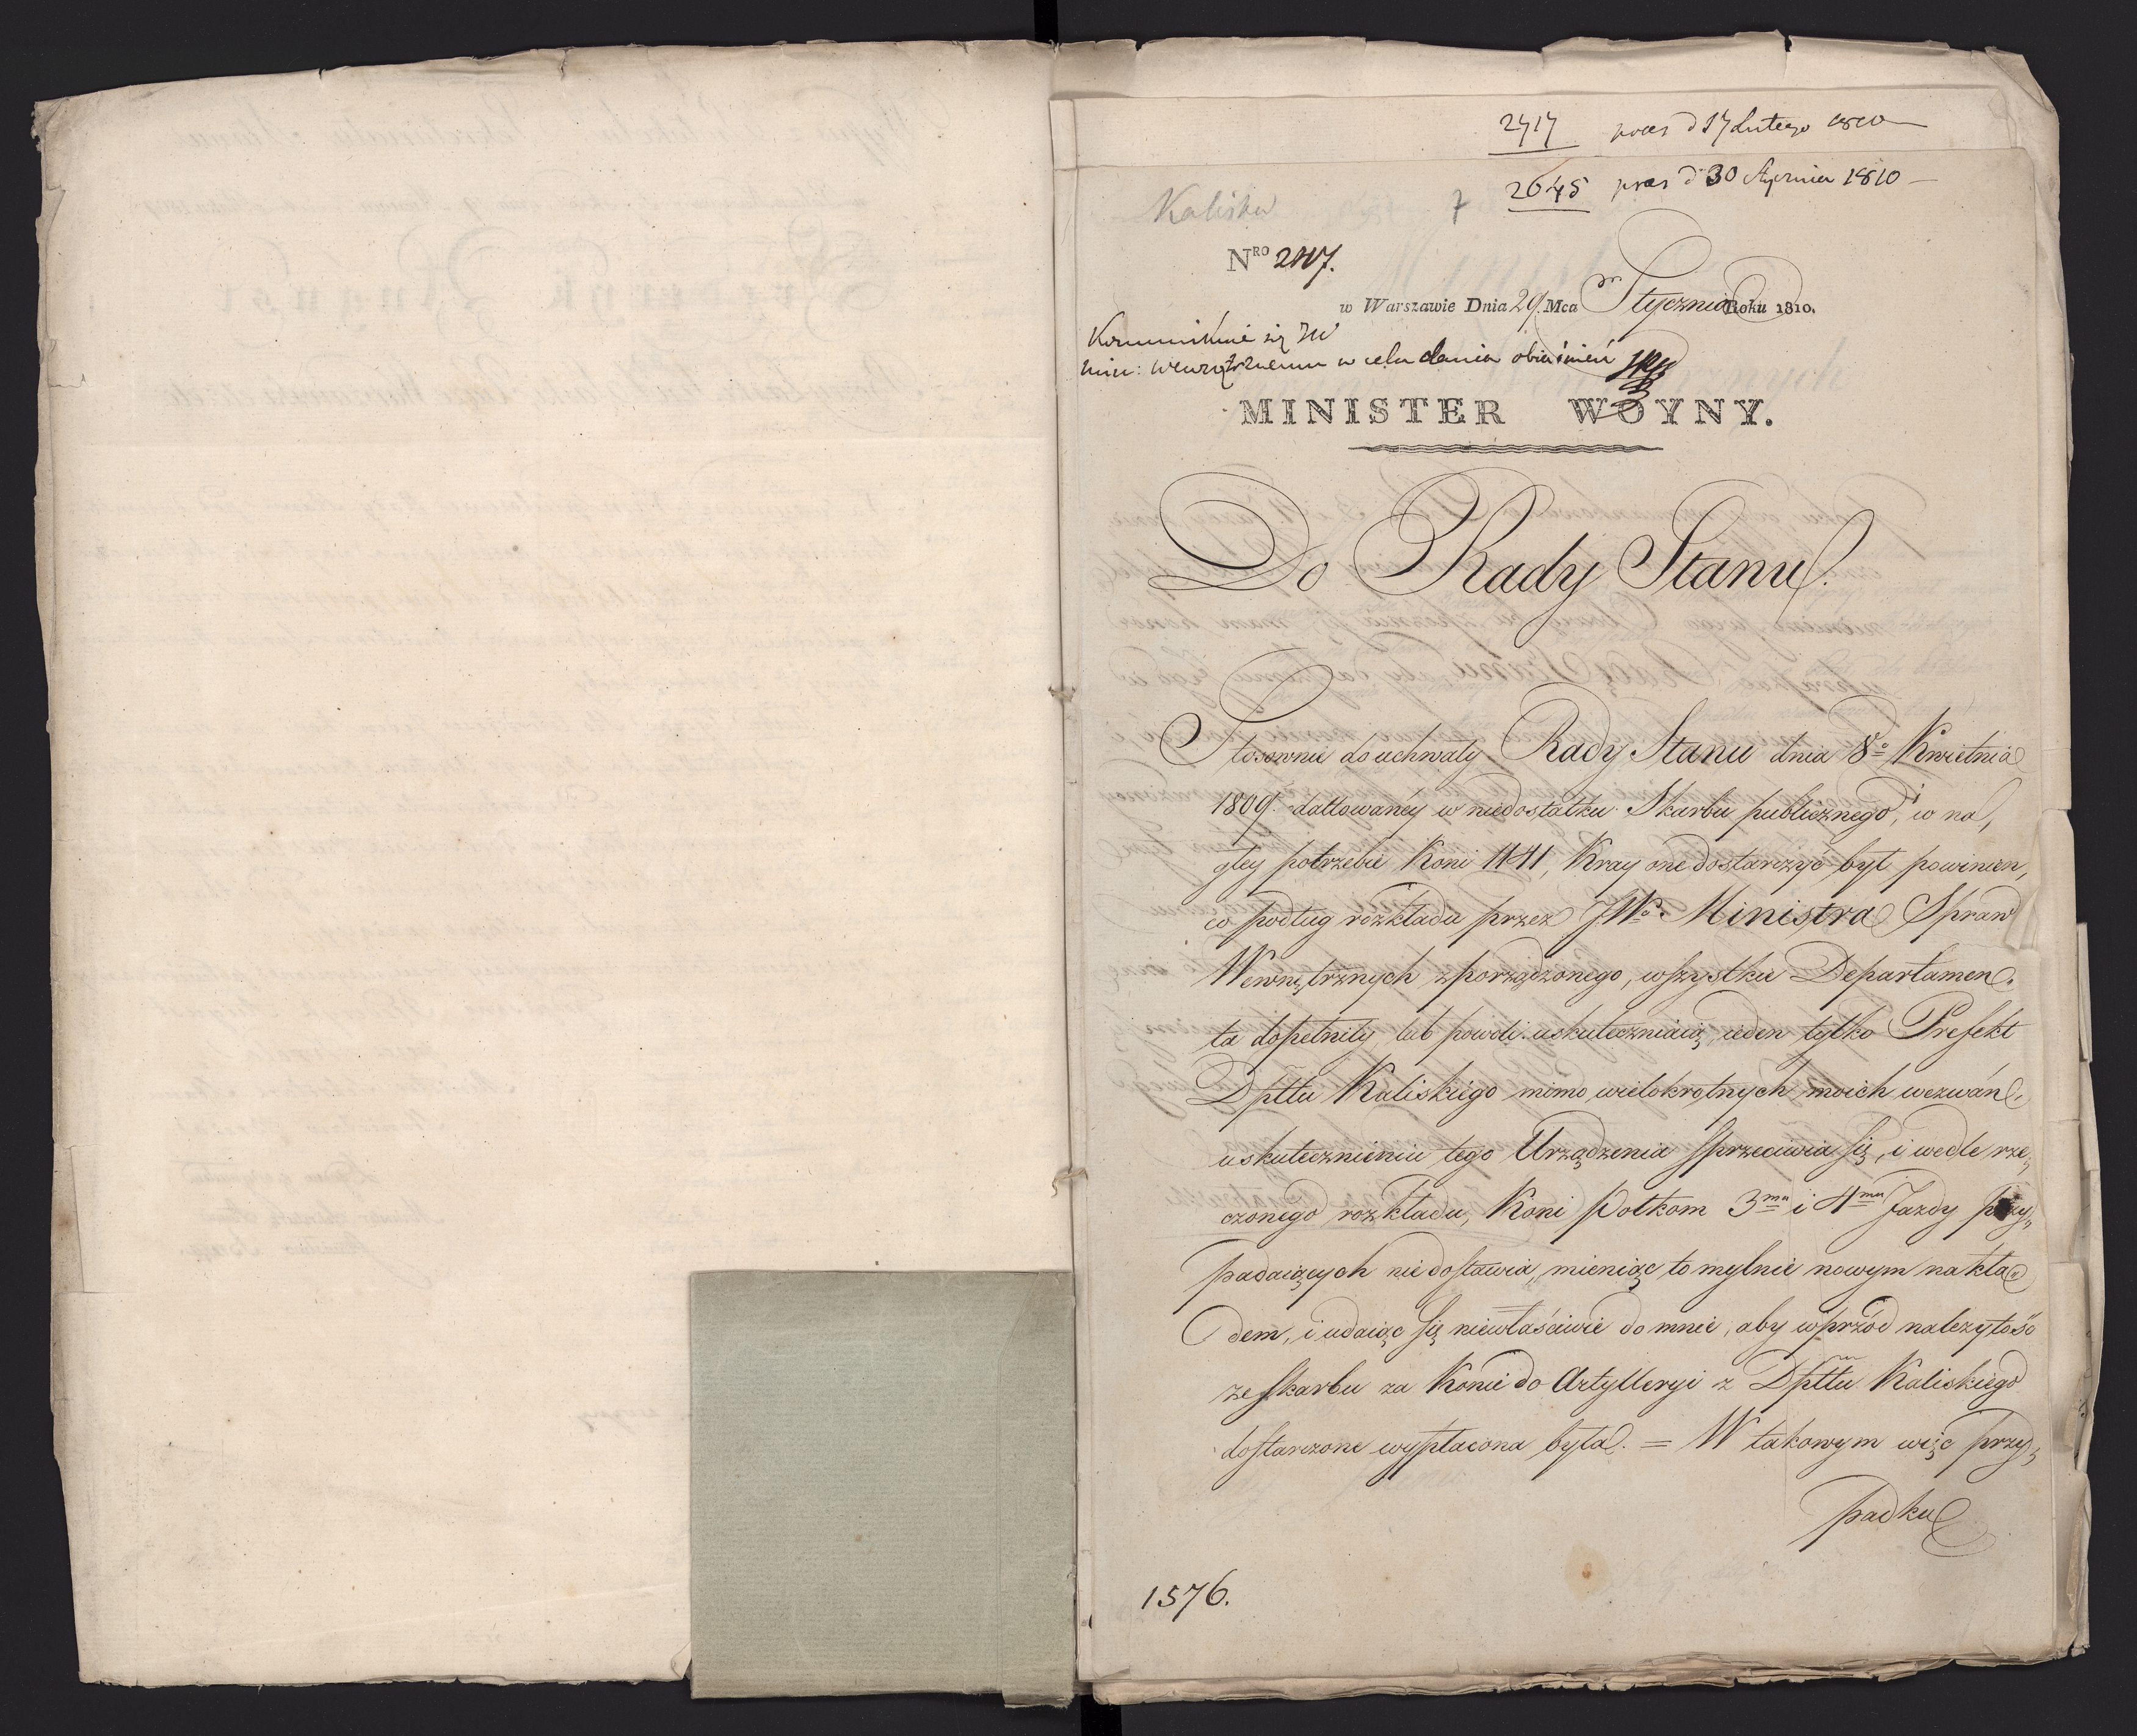 2717 praes d 17 Lutego 1810
2645 praes d 30 Stycznia 1810 —
Kalisku
7
Nro 2117.
w Warszawie Dnia 29. Mca Stycznia Roku 1810.
Kommunikuie się JW
Min: Wewnętrznemu w celu dania obiaśnień
MINISTER WOYNY.
Do Rady Stanu.
Stosownie do uchwały Rady Stanu dnia 8o Kwietnia
1809. dattowaney w niedostatku Skarbu publicznego, i w na,
głey potrzebie Koni 1141, Kray one dostarczyć był powinien,
co podług rozkładu przez JWo Ministra Spraw
Wewnętrznych zporządzonego, wszystkie Departamen,
ta dopełniły, lub powoli uskuteczniaią, ieden tylko Prefekt
Dpttu Kaliskiego mimo wielokrotnych moich wezwań,
uskutecznieniu tego Urządzenia sprzeciwia się, i wedle rze,
czonego rozkładu, Koni Półkom 3mu i 4mu Jazdy przy,
padaiących nie dostawia, mieniąc to mylnie nowym nakła,
dem, i udaiąc się niewłaściwie do mnie, aby wprzód należytość
ze skarbu za Konie do Artylleryi z Dpttu Kaliskiego
dostarczone wypłacona była. = W takowym więc przy,
padku
1576.